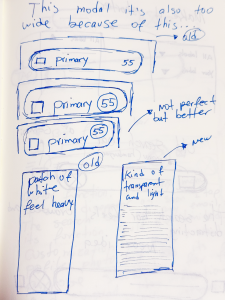 This modal it's also too
wide because of this...
old
primary 55
primary 55
primary 55
Not perfect
but better
old
new
patch of
white
feel heavy
kind of
transparent
and light